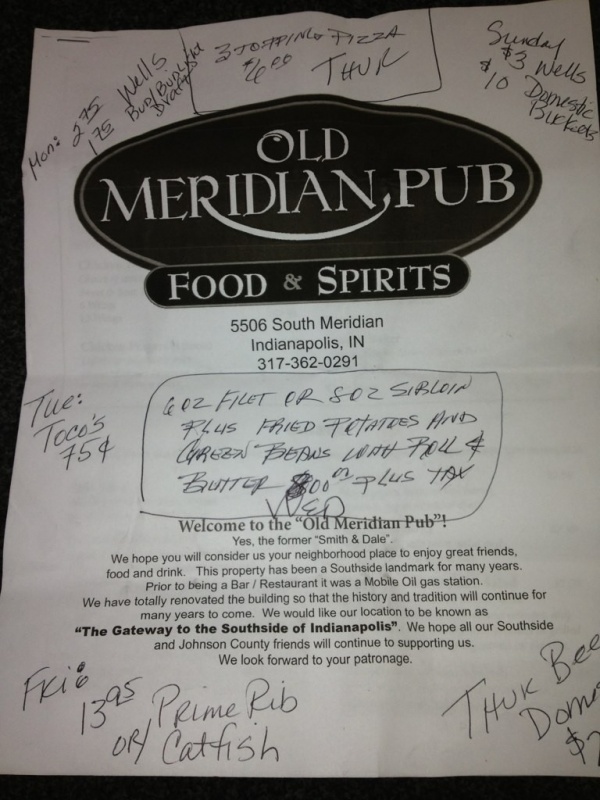 3 TOPPING PIZZA
$6.00
THUR
Mon: 2.75 Wells
1.75 Bud/Bud Light
Drafts
Sunday
$3 Wells
$10 Domestic
Buckets
OLD
MERIDIAN PUB
FOOD & SPIRITS
5506 South Meridian
Indianapolis, IN
317-362-0291
Tue:
Toco's
75¢
6 OZ FILET OR 8 OZ SIRLOIN
PLUS FRIED POTATOES AND
GREEN BEANS WITH ROLL &
BUTTER PLUS TAX
WED
Welcome to the "Old Meridian Pub"!
Yes, the former "Smith & Dale".
We hope you will consider us your neighborhood place to enjoy great friends,
food and drink. This property has been a Southside landmark for many years.
Prior to being a Bar / Restaurant it was a Mobile Oil gas station.
We have totally renovated the building so that the history and tradition will continue for
many years to come. We would like our location to be known as
"The Gateway to the Southside of Indianapolis". We hope all our Southside
and Johnson County friends will continue to supporting us.
We look forward to your patronage.
FRI:
13.95 Prime Rib
OR/ Catfish
THUR Bee
Dome
$